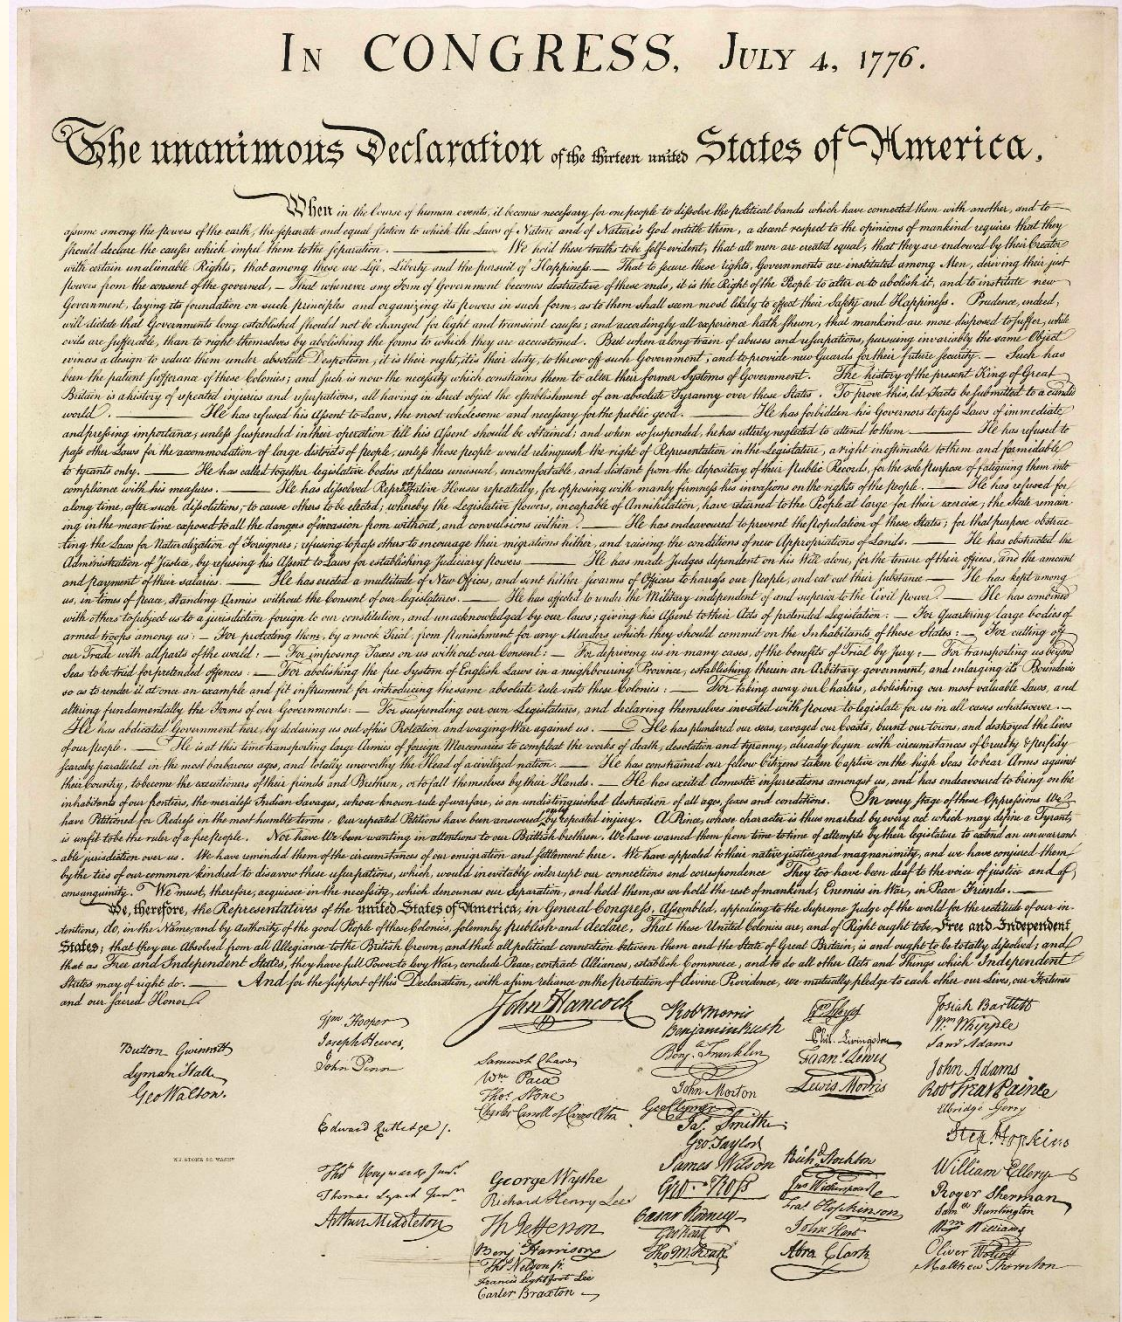 IN CONGRESS, JULY 4, 1776.
The unanimous Declaration of the thirteen united States of America,
When in the Course of human events, it becomes necessary for one people to dissolve the political bands which have connected them with another, and to
assume among the powers of the earth, the separate and equal station to which the Laws of Nature and of Nature's God entitle them, a decent respect to the opinions of mankind requires that they
should declare the causes which impel them to the separation. — We hold these truths to be self-evident, that all men are created equal, that they are endowed by their Creator
with certain unalienable Rights, that among these are Life, Liberty and the pursuit of Happiness. — That to secure these rights, Governments are instituted among Men, deriving their just
powers from the consent of the governed, — That whenever any Form of Government becomes destructive of these ends, it is the Right of the People to alter or to abolish it, and to institute new
Government, laying its foundation on such principles and organizing its powers in such form, as to them shall seem most likely to effect their Safety and Happiness. Prudence, indeed,
will dictate that Governments long established should not be changed for light and transient causes; and accordingly all experience hath shewn, that mankind are more disposed to suffer, while
evils are sufferable, than to right themselves by abolishing the forms to which they are accustomed. But when a long train of abuses and usurpations, pursuing invariably the same Object
evinces a design to reduce them under absolute Despotism, it is their right, it is their duty, to throw off such Government, and to provide new Guards for their future security. — Such has
been the patient sufferance of these Colonies; and such is now the necessity which constrains them to alter their former Systems of Government. The history of the present King of Great
Britain is a history of repeated injuries and usurpations, all having in direct object the establishment of an absolute Tyranny over these States. To prove this, let Facts be submitted to a candid
world. — He has refused his Assent to Laws, the most wholesome and necessary for the public good. — He has forbidden his Governors to pass Laws of immediate
and pressing importance, unless suspended in their operation till his Assent should be obtained; and when so suspended, he has utterly neglected to attend to them. — He has refused to
pass other Laws for the accommodation of large districts of people, unless those people would relinquish the right of Representation in the Legislature, a right inestimable to them and formidable
to tyrants only. — He has called together legislative bodies at places unusual, uncomfortable, and distant from the depository of their Public Records, for the sole purpose of fatiguing them into
compliance with his measures. — He has dissolved Representative Houses repeatedly, for opposing with manly firmness his invasions on the rights of the people. — He has refused for
a long time, after such dissolutions, to cause others to be elected; whereby the Legislative powers, incapable of Annihilation, have returned to the People at large for their exercise; the State remain-
ing in the mean time exposed to all the dangers of invasion from without, and convulsions within. — He has endeavoured to prevent the population of these States; for that purpose obstruc-
ting the Laws for Naturalization of Foreigners; refusing to pass others to encourage their migrations hither, and raising the conditions of new Appropriations of Lands. — He has obstructed the
Administration of Justice, by refusing his Assent to Laws for establishing Judiciary powers. — He has made Judges dependent on his Will alone, for the tenure of their offices, and the amount
and payment of their salaries. — He has erected a multitude of New Offices, and sent hither swarms of Officers to harrass our people, and eat out their substance. — He has kept among
us, in times of peace, Standing Armies without the Consent of our legislatures. — He has affected to render the Military independent of and superior to the Civil power. — He has combined
with others to subject us to a jurisdiction foreign to our constitution, and unacknowledged by our laws; giving his Assent to their Acts of pretended Legislation: — For Quartering large bodies of
armed troops among us: — For protecting them, by a mock Trial, from punishment for any Murders which they should commit on the Inhabitants of these States: — For cutting off
our Trade with all parts of the world: — For imposing Taxes on us without our Consent: — For depriving us in many cases, of the benefits of Trial by Jury: — For transporting us beyond
Seas to be tried for pretended offences: — For abolishing the free System of English Laws in a neighbouring Province, establishing therein an Arbitrary government, and enlarging its Boundaries
so as to render it at once an example and fit instrument for introducing the same absolute rule into these Colonies: — For taking away our Charters, abolishing our most valuable Laws, and
altering fundamentally the Forms of our Governments: — For suspending our own Legislatures, and declaring themselves invested with power to legislate for us in all cases whatsoever. —
He has abdicated Government here, by declaring us out of his Protection and waging War against us. — He has plundered our seas, ravaged our Coasts, burnt our towns, and destroyed the lives
of our people. — He is at this time transporting large Armies of foreign Mercenaries to compleat the works of death, desolation and tyranny, already begun with circumstances of Cruelty & perfidy
scarcely paralleled in the most barbarous ages, and totally unworthy the Head of a civilized nation. — He has constrained our fellow Citizens taken Captive on the high Seas to bear Arms against
their Country, to become the executioners of their friends and Brethren, or to fall themselves by their Hands. — He has excited domestic insurrections amongst us, and has endeavoured to bring on the
inhabitants of our frontiers, the merciless Indian Savages, whose known rule of warfare, is an undistinguished destruction of all ages, sexes and conditions. In every stage of these Oppressions We
have Petitioned for Redress in the most humble terms: Our repeated Petitions have been answered only by repeated injury. A Prince, whose character is thus marked by every act which may define a Tyrant,
is unfit to be the ruler of a free people. Nor have We been wanting in attentions to our Brittish brethren. We have warned them from time to time of attempts by their legislature to extend an unwarrant-
able jurisdiction over us. We have reminded them of the circumstances of our emigration and settlement here. We have appealed to their native justice and magnanimity, and we have conjured them
by the ties of our common kindred to disavow these usurpations, which, would inevitably interrupt our connections and correspondence. They too have been deaf to the voice of justice and of
consanguinity. We must, therefore, acquiesce in the necessity, which denounces our Separation, and hold them, as we hold the rest of mankind, Enemies in War, in Peace Friends. —
We, therefore, the Representatives of the united States of America, in General Congress, Assembled, appealing to the Supreme Judge of the world for the rectitude of our in-
tentions, do, in the Name, and by Authority of the good People of these Colonies, solemnly publish and declare, That these United Colonies are, and of Right ought to be Free and Independent
States; that they are Absolved from all Allegiance to the British Crown, and that all political connection between them and the State of Great Britain, is and ought to be totally dissolved; and
that as Free and Independent States, they have full Power to levy War, conclude Peace, contract Alliances, establish Commerce, and to do all other Acts and Things which Independent
States may of right do. — And for the support of this Declaration, with a firm reliance on the protection of divine Providence, we mutually pledge to each other our Lives, our Fortunes
and our sacred Honor.
Button Gwinnett
Lyman Hall
Geo Walton.
W. J. STONE SC. WASHN.
Wm Hooper
Joseph Hewes,
John Penn
Edward Rutledge /.
Thos Heyward Junr.
Thomas Lynch Junr.
Arthur Middleton
John Hancock
Samuel Chase
Wm. Paca
Thos. Stone
Charles Carroll of Carrollton
George Wythe
Richard Henry Lee
Th Jefferson
Benj Harrison
Thos Nelson jr.
Francis Lightfoot Lee
Carter Braxton
Robt Morris
Benjamin Rush
Benj. Franklin
John Morton
Geo Clymer
Jas. Smith
Geo. Taylor
James Wilson
Geo. Ross
Caesar Rodney
Geo Read
Tho M:Kean
Wm Floyd
Phil. Livingston
Frans. Lewis
Lewis Morris
Richd. Stockton
Jno Witherspoon
Fras. Hopkinson
John Hart
Abra Clark
Josiah Bartlett
Wm. Whipple
Saml Adams
John Adams
Robt Treat Paine
Elbridge Gerry
Step. Hopkins
William Ellery
Roger Sherman
Saml Huntington
Wm. Williams
Oliver Wolcott
Matthew Thornton